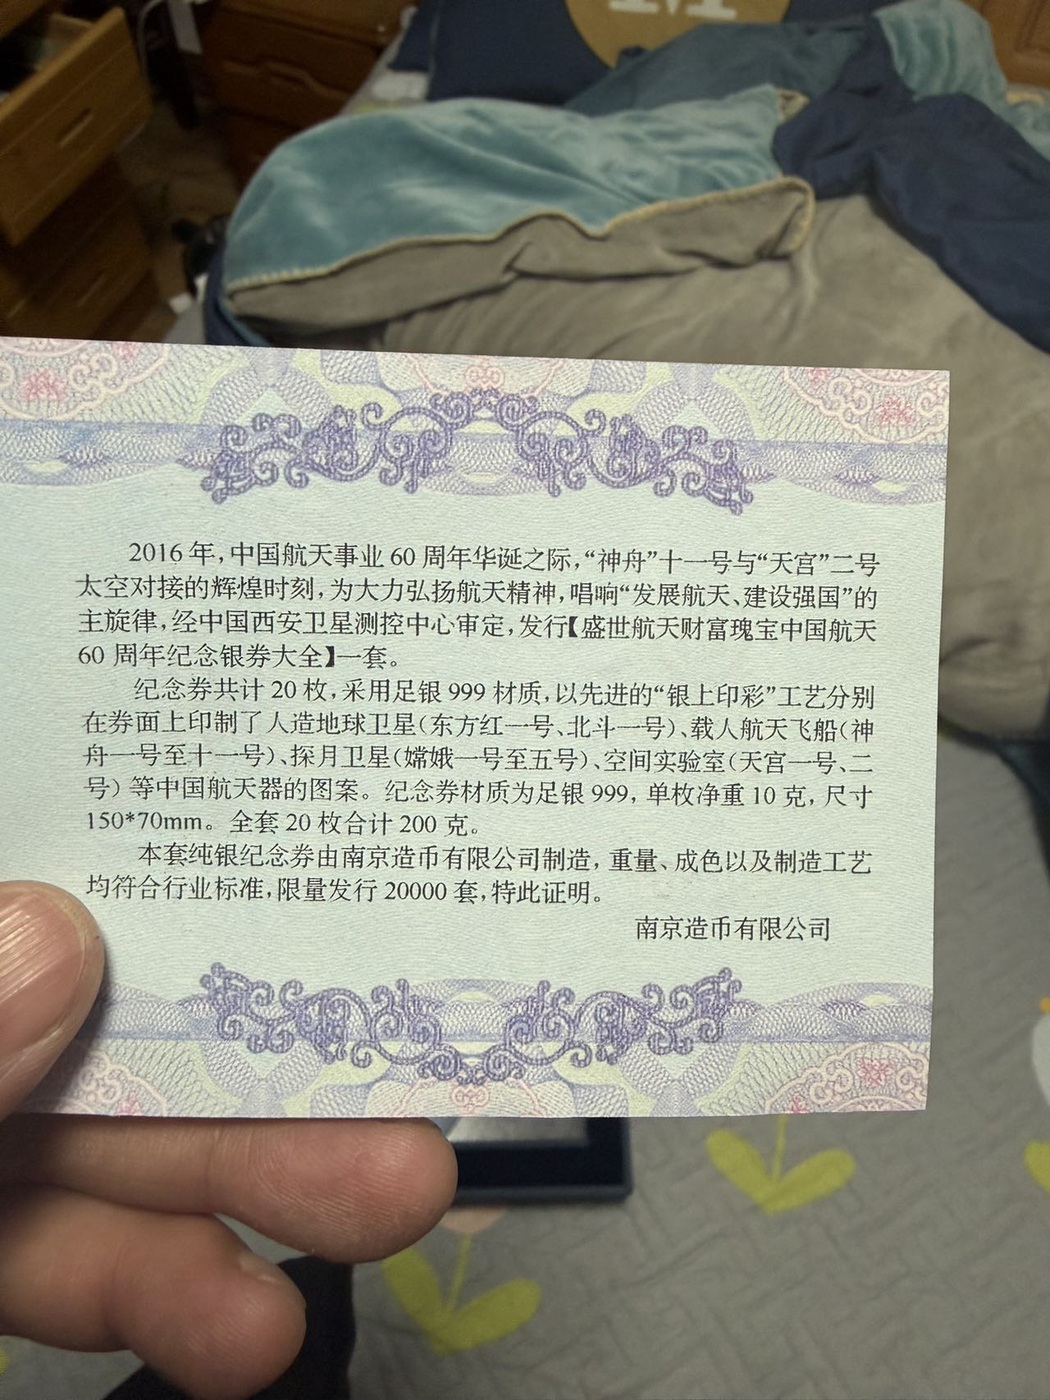 2016 年，中国航天事业 60 周年华诞之际，“神舟”十一号与“天宫”二号
太空对接的辉煌时刻，为大力弘扬航天精神，唱响“发展航天、建设强国”的
主旋律，经中国西安卫星测控中心审定，发行【盛世航天财富瑰宝中国航天
60 周年纪念银券大全】一套。
纪念券共计 20 枚，采用足银 999 材质，以先进的“银上印彩”工艺分别
在券面上印制了人造地球卫星（东方红一号、北斗一号）、载人航天飞船（神
舟一号至十一号）、探月卫星（嫦娥一号至五号）、空间实验室（天宫一号、二
号）等中国航天器的图案。纪念券材质为足银 999，单枚净重 10 克，尺寸
150*70mm。全套 20 枚合计 200 克。
本套纯银纪念券由南京造币有限公司制造，重量、成色以及制造工艺
均符合行业标准，限量发行 20000 套，特此证明。
南京造币有限公司